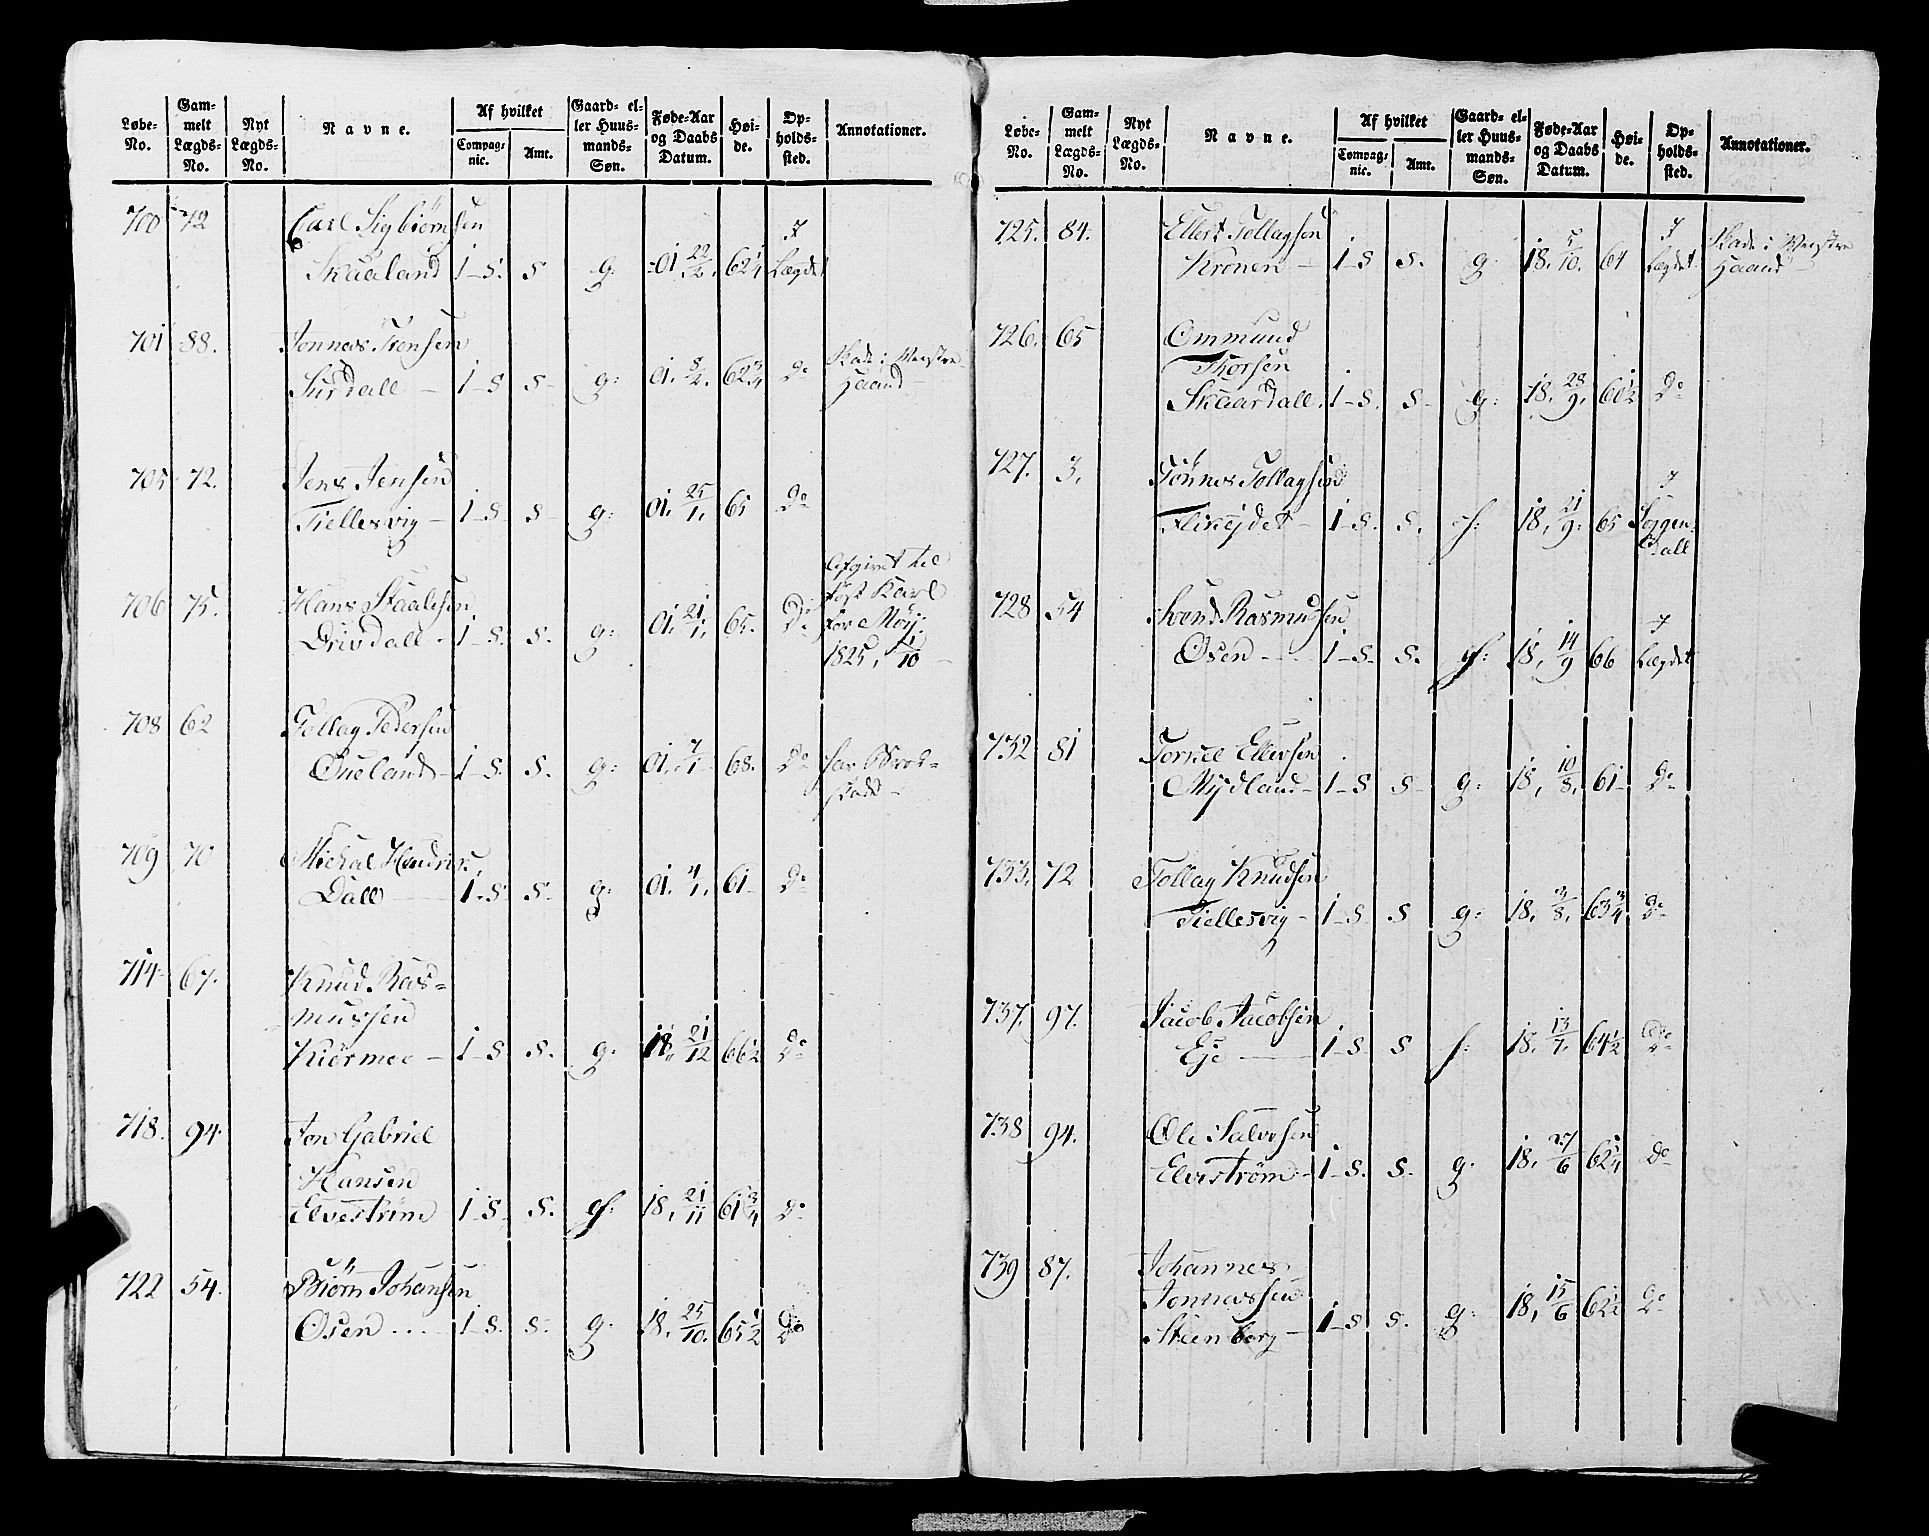 Løbe-No. Gam-melt Lægds-No. Nyt Lægds-No. Navne. Af hvilket Compag-nie. Amt. Gaard- el-ler Huus-mands-Søn. Føde-Aar og Daabs Datum. Høi-de. Op-holds-sted. Annotationer.
700 72 Carl Sigbiørnsen I
Skaaland 1-S. S g: 01 22/2. 62 1/4 Lægdet
701 88. Jonnas Tronsen Skade i Venstre
Surdall 1-S S- g: 01. 8/2. 62 3/4 Do Haand
705 72. Jens Jensen
Tiellesvig 1-S S- g: 01. 25/1. 65 Do
Afgivet til
706 75. Hans Staalesen
Drivdall 1-S. S. g: 01. 21/1. 65. Do for
1825, 1/10
708 62 Tollag Pedersen
Øueland 1-S. S. g: 01. 7/1 68. Do har Brok-
709 70 Michal Hendrics.
Dall 1-S. S- g: 01. 4/1. 61 Do
714 67. Knud Ras-
mussen
1-S S. g. 18. 21/12 66 1/2 Do
718. 94. Jon Gabriel
Hansen
Elvestrøm 1-S. S. f: 18. 21/11 61 3/4 Do
722 54. Biørn Johansen
Osen 1-S. S. g. 18. 25/10. 65 1/2 Do
Løbe-No. Gam-melt Lægds-No. Nyt Lægds-No. Navne. Af hvilket Compag-nie. Amt. Gaard- el-ler Huus-mands-Søn. Føde-Aar og Daabs Datum. Høi-de. Op-holds-sted. Annotationer.
725. 84. Ellert Tollagsen I Skade i Venstre
Kronen 1-S S. g: 18. 5/10. 64 Lægdet Haand
726. 65 Ommund
Thorsen
Skaardall 1-S. S g: 18. 28/9. 60 1/2 Do
727. 3. Tønnes Tollagsen I
1-S. S. f: 18. 21/9. 65 Soggen-
dall
728 54 Svend Rasmussen I
Osen 1-S. S. f: 18. 14/9 66 Lægdet
732 81 Torkel Ellevsen
Mydland 1-S S- g: 18. 10/8. 61 Do
733. 72 Tollag Knudsen
Tiellesvig 1-S S g: 18. 3/8. 63 3/4 Do
737. 97. Jacob Jacobsen
Eje 1-S S f: 18. 13/7. 64 1/2 Do
738 94. Ole Salvesen
Elvestrøm 1-S. S. g. 18. 27/6 62 1/4 Do
739 87. Johannes
Jonnassen
Steenberg 1-S S. g: 18. 15/6 62 1/2 Do